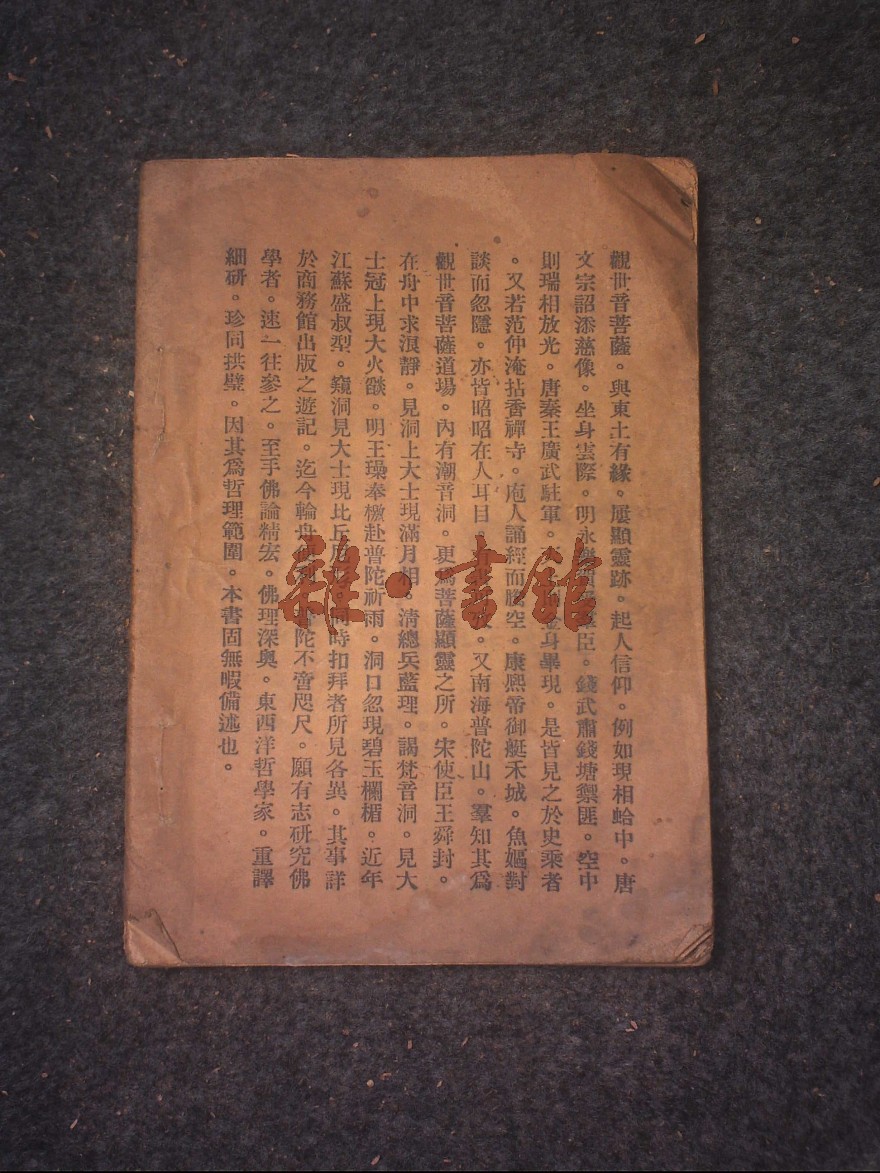 觀世音菩薩。與東土有緣。屢顯靈跡。起人信仰。例如現相蛤中。唐
文宗詔添慈像。坐身雲際。明永樂臣。錢武肅錢塘禦匪。空中
則瑞相放光。唐秦王廣武駐軍。金身畢現。是皆見之於史乘者
。又若范仲淹拈香禪寺。庖人誦經而騰空。康熙帝御艇禾城。魚嫗對
談而忽隱。亦皆昭昭在人耳目。又南海普陀山。羣知其為
觀世音菩薩道場。內有潮音洞。更為菩薩顯靈之所。宋使臣王舜封。
在舟中求浪靜。見洞上大士現滿月相。清總兵藍理。謁梵音洞。見大
士冠上現大火燄。明王璪奉檄赴普陀祈雨。洞口忽現碧玉欄楯。近年
江蘇盛叔型。窺洞見大士現比丘同時扣拜者所見各異。其事詳
於商務館出版之遊記。迄今輪舟陀不啻咫尺。願有志研究佛
學者。速一往參之。至乎佛論精宏。佛理深奧。東西洋哲學家。重譯
細研。珍同拱璧。因其為哲理範圍。本書固無暇備述也。
雜·書館